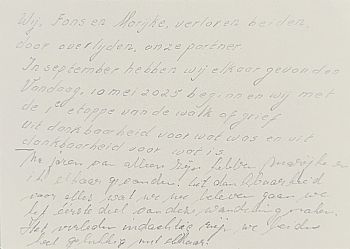 Wij, Fons en Marijke, verloren beiden,
door overlijden, onze partner.
In september hebben wij elkaar gevonden
Vandaag, 10 mei 2025 beginnen wij met
de 1e etappe van de walk of grief
uit dankbaarheid voor wat was en uit
dankbaarheid voor wat is.
jaren alleen zijn hebben Marijke en
ik elkaar gevonden. Uit dankbaarheid
voor alles wat we nu beleven gaan we
het eerste deel van deze wandeling maken.
Het verleden indachtig zijn we beiden
heel gelukkig met elkaar!